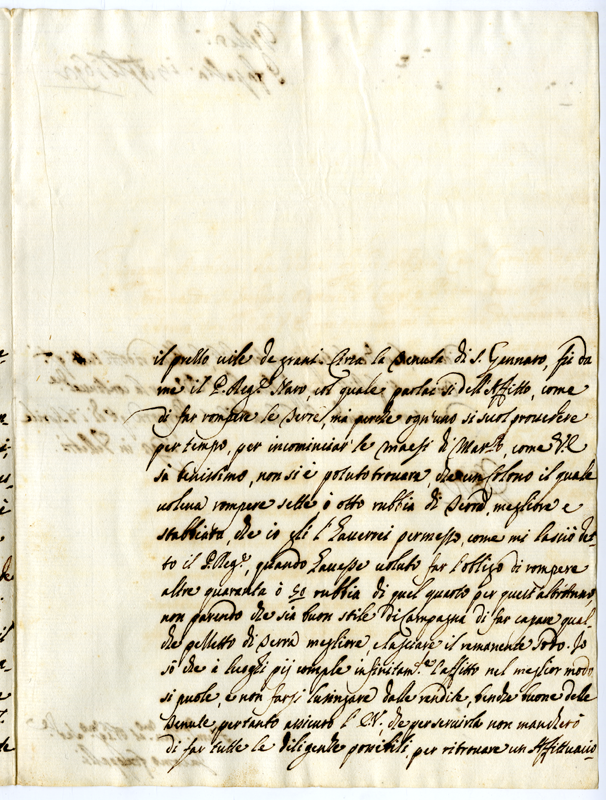 il prezzo vile de grani. Circa la Tenuta di S. Gennaro, fù da
mè il P. Reg.e Naro, col quale parlai sì dell'Affitto, come
di far rompere le Terre, mà perche ogn'uno si suol provedere
per tempo, per incominciar le maesi di Marzo, come V.R.
sà benissimo, non si è potuto trovare, che un Colono il quale
voleva rompere sette ò otto rubbia di Terra, megliore e
stabbiata, che io gli l'haverei permesso, come mi lasciò det-
to il P. Reg.e, quando havesse voluto far l'obligo di rompere
altre quaranta ò 50 rubbia di quel quarto per quest'altro anno,
non parendo che sia buon stile di Campagna di far capare qual-
che pezzetto di Terra megliore e lasciare il remanente sodo. Io
sò che à luoghi pij comple infinitam.te l'affitto nel meglior modo
si puole, e non farsi lusingare dalle rendite, benche buone delle
Tenute, pertanto assicuro l' P.V. che per servirla non mancherò
di far tutte le diligenze possibili per ritrovare un Affittuario